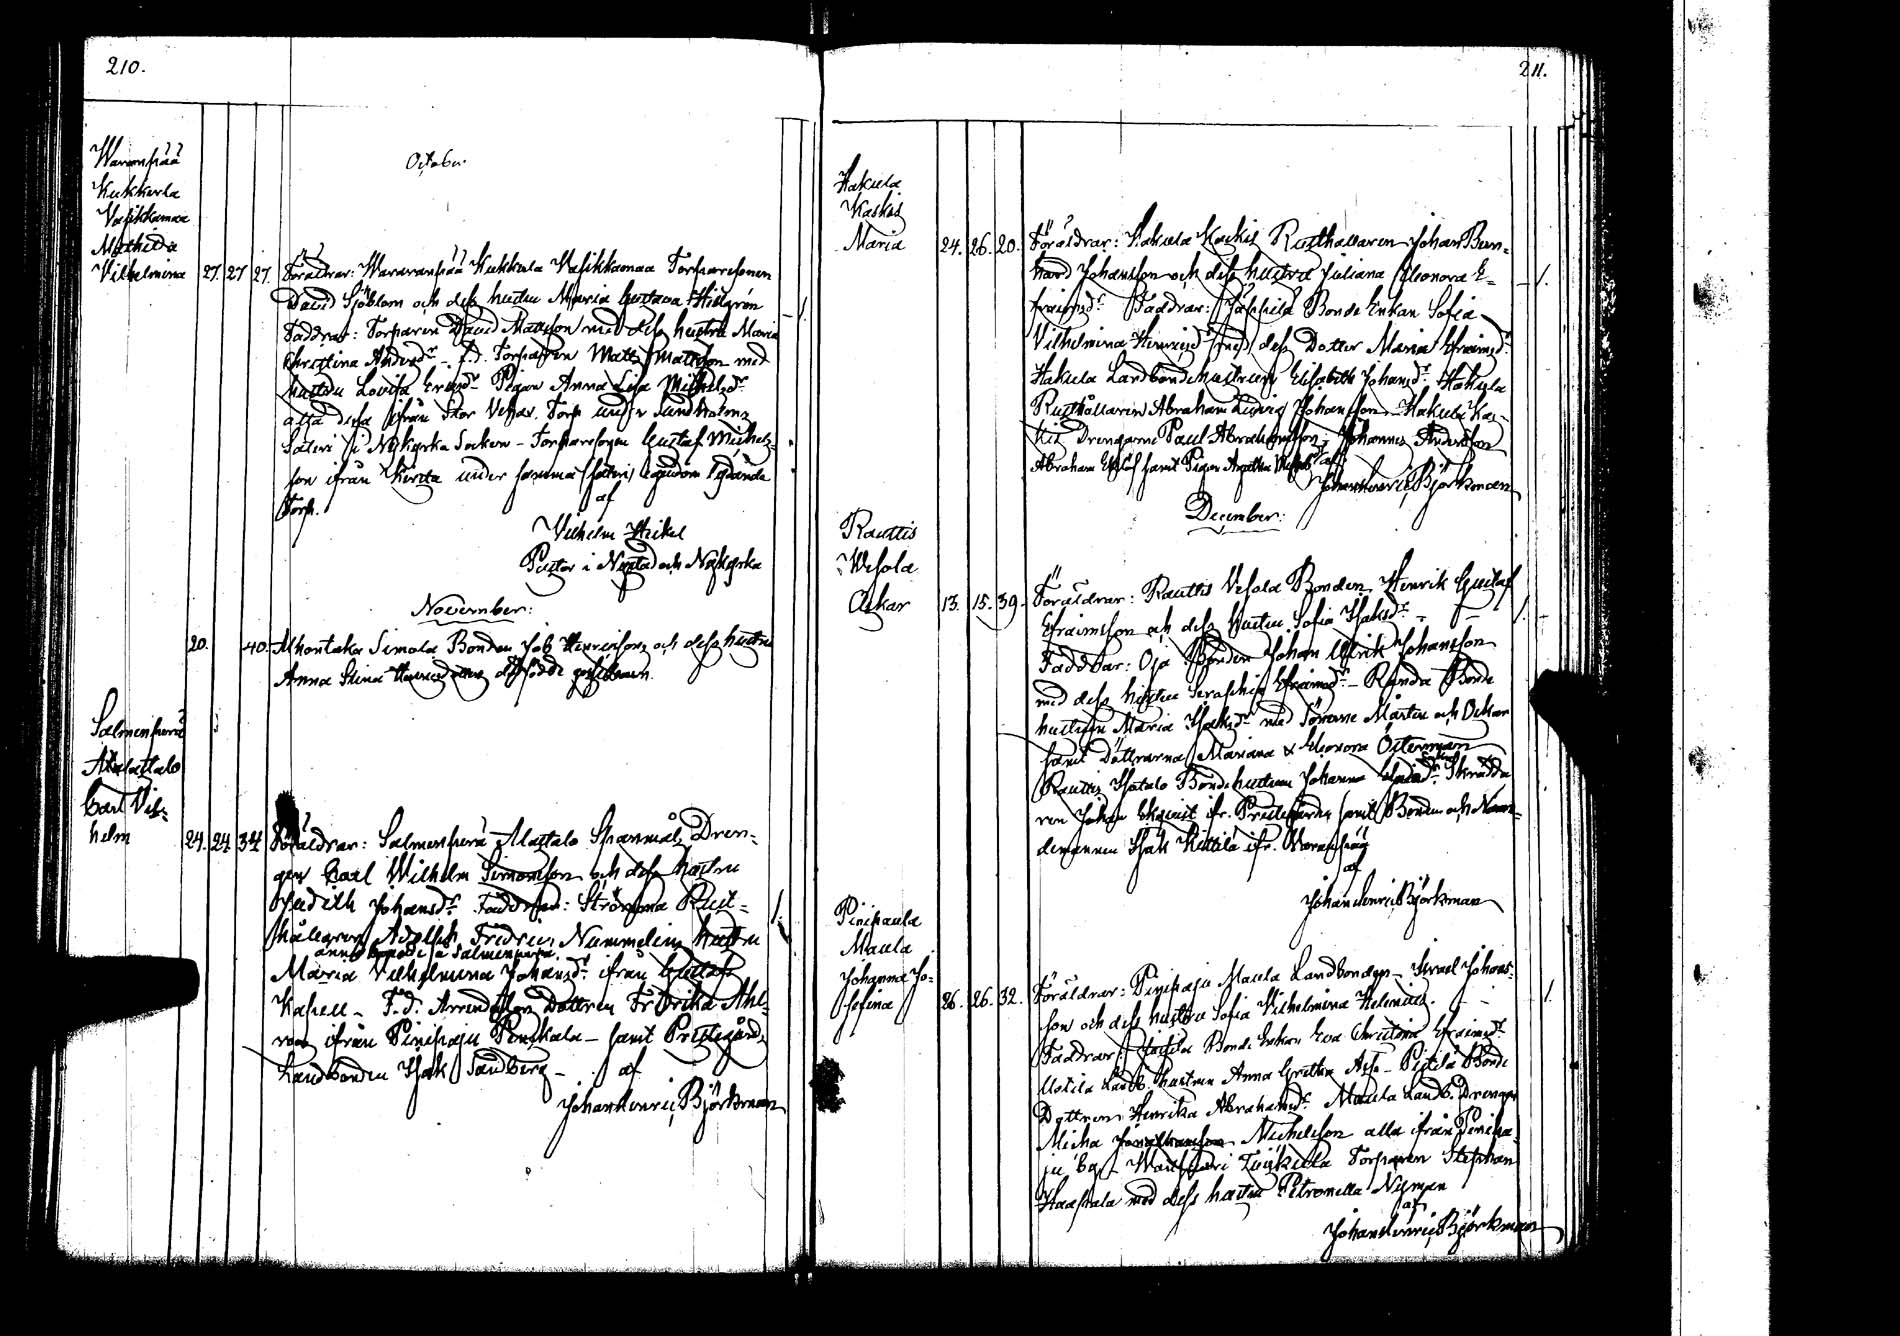 210.
October
Waranpää
Kukkula
Vasikkamaa
Mathilda
Vilhelmina 27. 27 27.
Föräldrar: Waravanpää Kukkula Vasikkamaa Torparesonen
David Sjöblom och dess hustru Maria Gustava
Faddrar: Torparen David Mattsson med dess hustru Maria
Christina Andersdr - f.d. Torparen Matts Mattsson med
hustru Lovisa Ericsdr Pigan Anna Lisa Michelsdr
alla dessa ifrån Stor Torp under Sundholms
Säteri i Nykyrka Socken - Torparesonen Gustaf Michels-
son ifrån under samma säteri lydande
Torp.
af
Vilhelm Heikel
Pastor i Nystad och Nykyrka
November:
20. 40.
Alhontaka Simola Bonden Job Henricsson och dess hustru
Anna Stina dödfödde gossebarn.
Salmenperä
Alastalo
Carl Vil-
helm 24. 24. 34
Föräldrar: Salmenperä Alastalo Spanmåls Dren-
gen Carl Wilhelm Simonsson och dess hustru
Judith Johansdr. Faddrar: Strömma Rust-
hållaren Adolph Fredric Nummelins hustru
anno Salmenperä
Maria Vilhelmina Johansdr ifrån Gustafs
Kapell - F.d. Dottren Fredrika Ahl-
roos ifrån Pinipaju Penikala - samt Prestegårds
Landbonden Isak Sandberg -
af
Johan Henric Björkman
211.
Hakula
Kaskis
Maria 24. 26. 20.
Föräldrar: Hakula Kaskis Rusthållaren Johan Bern-
hard Johansson och dess hustru Juliana Eleonora E-
fraimsdr Faddrar: Bonde Enkan Sofia
Vilhelmina Henricsdr med dess Dotter Maria Efraimsdr
Hakula Landbondehustrun Elisabeth Johansdr Hakula
Rusthållaren Abraham Ludvig Johansson - Hakula Kas-
kis Drengarne Paul Abrahamsson, Johannes Andersson
Abraham samt Pigan Agatha
af
Johan Henric Björkman
December:
Rauttis
Vesola
Oskar 13. 15. 39.
Föräldrar: Rauttis Vesola Bonden Henrik Gustaf
Efraimsson och dess hustru Sofia Isaksdr.
Faddrar: Oja Bonden Johan Ulrik Johansson
med dess hustru Seraphia Efraimsdr - Randa Bonde
hustrun Maria Isaksdr med Sönerne Mårten och Oskar
samt Döttrarna Mariana & Eleonora Österman
Rauttis Isotalo Bondehustrun Johanna Skrädda-
ren Johan ifr. Prestegården samt Bonden och Näm-
demannen Isak Kittilä ifr. Waranpää
af
Johan Henric Björkman
Pinipaula
Maula
Johanna Jo-
sefina 26. 26. 32.
Föräldrar: Pinipaju Maula Landbonden Israel Johans-
son och dess hustru Sofia Vilhelmina Helenius.
Faddrar: Bonde Enkan Eva Christina Efraimsdr
Landb. hustrun Anna Gretha - Bonde
Dottren Henrika Abrahamsdr Maula Landb. Drengen
Micha Michelsson alla ifrån Pinipa-
ju By - Torparen Stephan
Haapala med dess hustru Petronella Nyman
af
Johan Henric Björkman